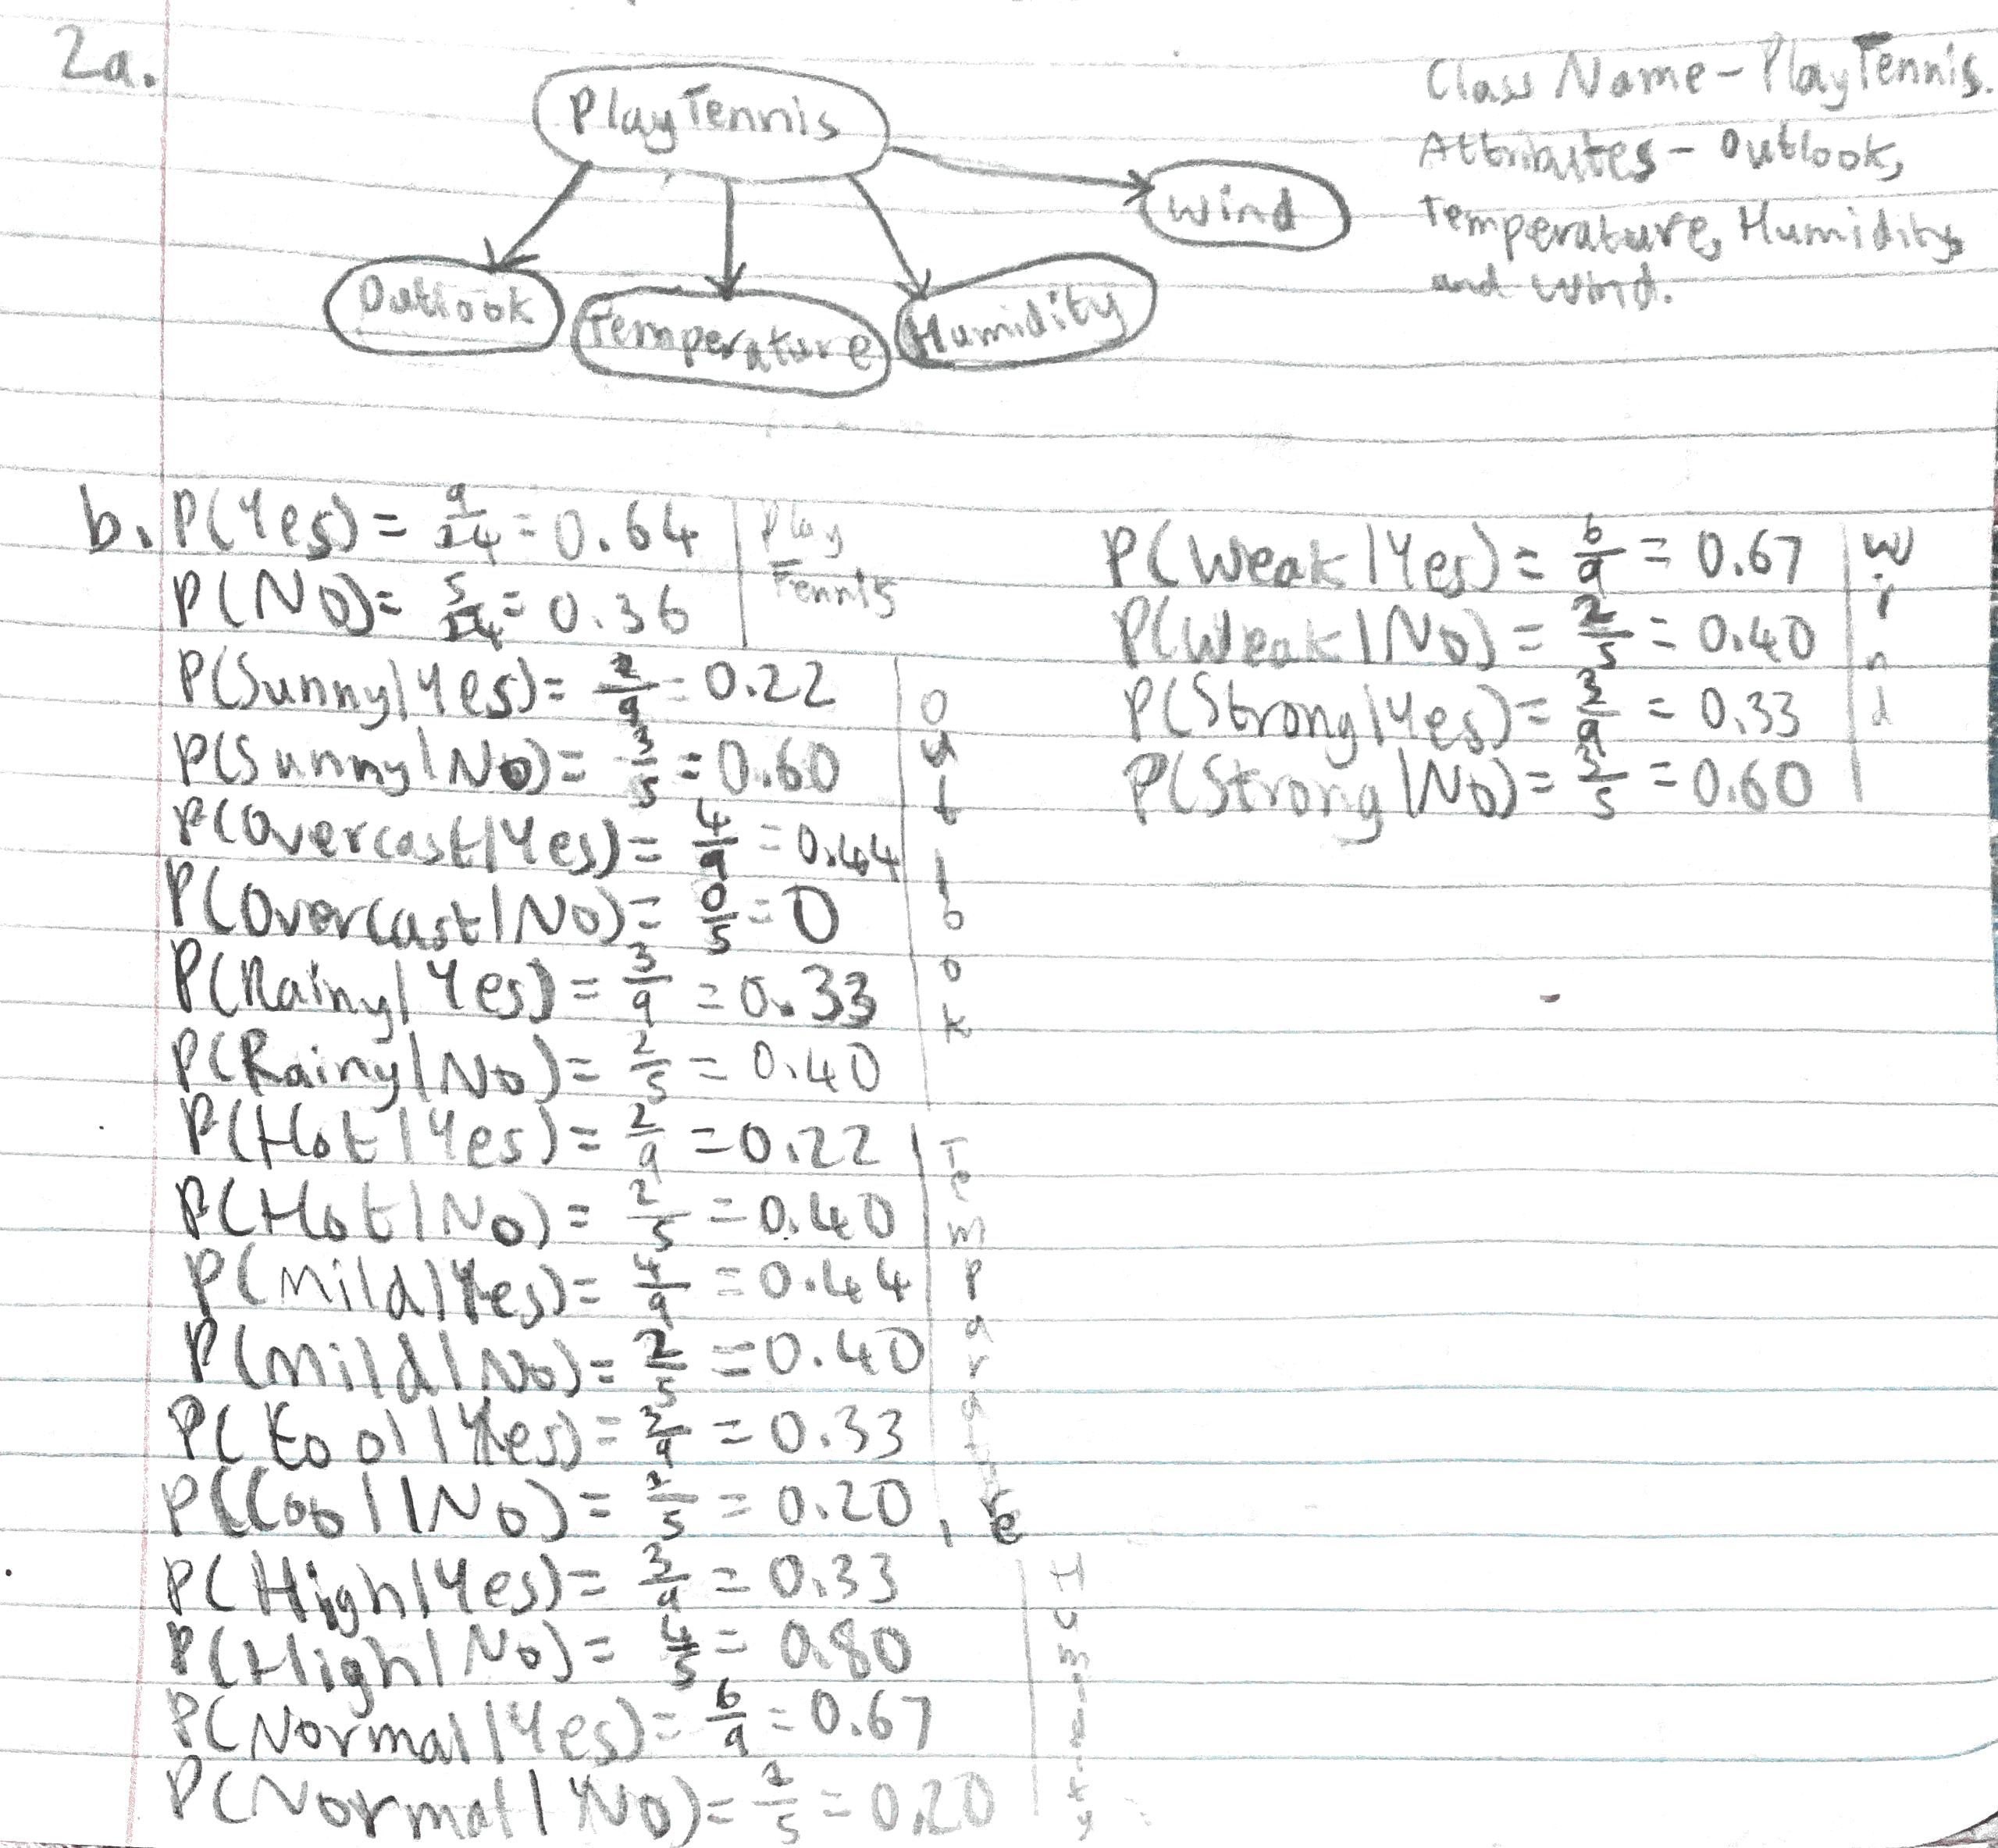 2a.
PlayTennis
Outlook
Temperature
Humidity
Wind
Class Name - PlayTennis.
Attributes - Outlook,
Temperature, Humidity,
and Wind.
b. P(Yes) = 9/14 = 0.64
P(No) = 5/14 = 0.36
Play
Tennis
P(Sunny|Yes) = 2/9 = 0.22
P(Sunny|No) = 3/5 = 0.60
P(Overcast|Yes) = 4/9 = 0.44
P(Overcast|No) = 0/5 = 0
P(Rainy|Yes) = 3/9 = 0.33
P(Rainy|No) = 2/5 = 0.40
Outlook
P(Hot|Yes) = 2/9 = 0.22
P(Hot|No) = 2/5 = 0.40
P(Mild|Yes) = 4/9 = 0.44
P(Mild|No) = 2/5 = 0.40
P(Cool|Yes) = 3/9 = 0.33
P(Cool|No) = 1/5 = 0.20
Temparature
P(High|Yes) = 3/9 = 0.33
P(High|No) = 4/5 = 0.80
P(Normal|Yes) = 6/9 = 0.67
P(Normal|No) = 1/5 = 0.20
Humidity
P(Weak|Yes) = 6/9 = 0.67
P(Weak|No) = 2/5 = 0.40
P(Strong|Yes) = 3/9 = 0.33
P(Strong|No) = 3/5 = 0.60
Wind